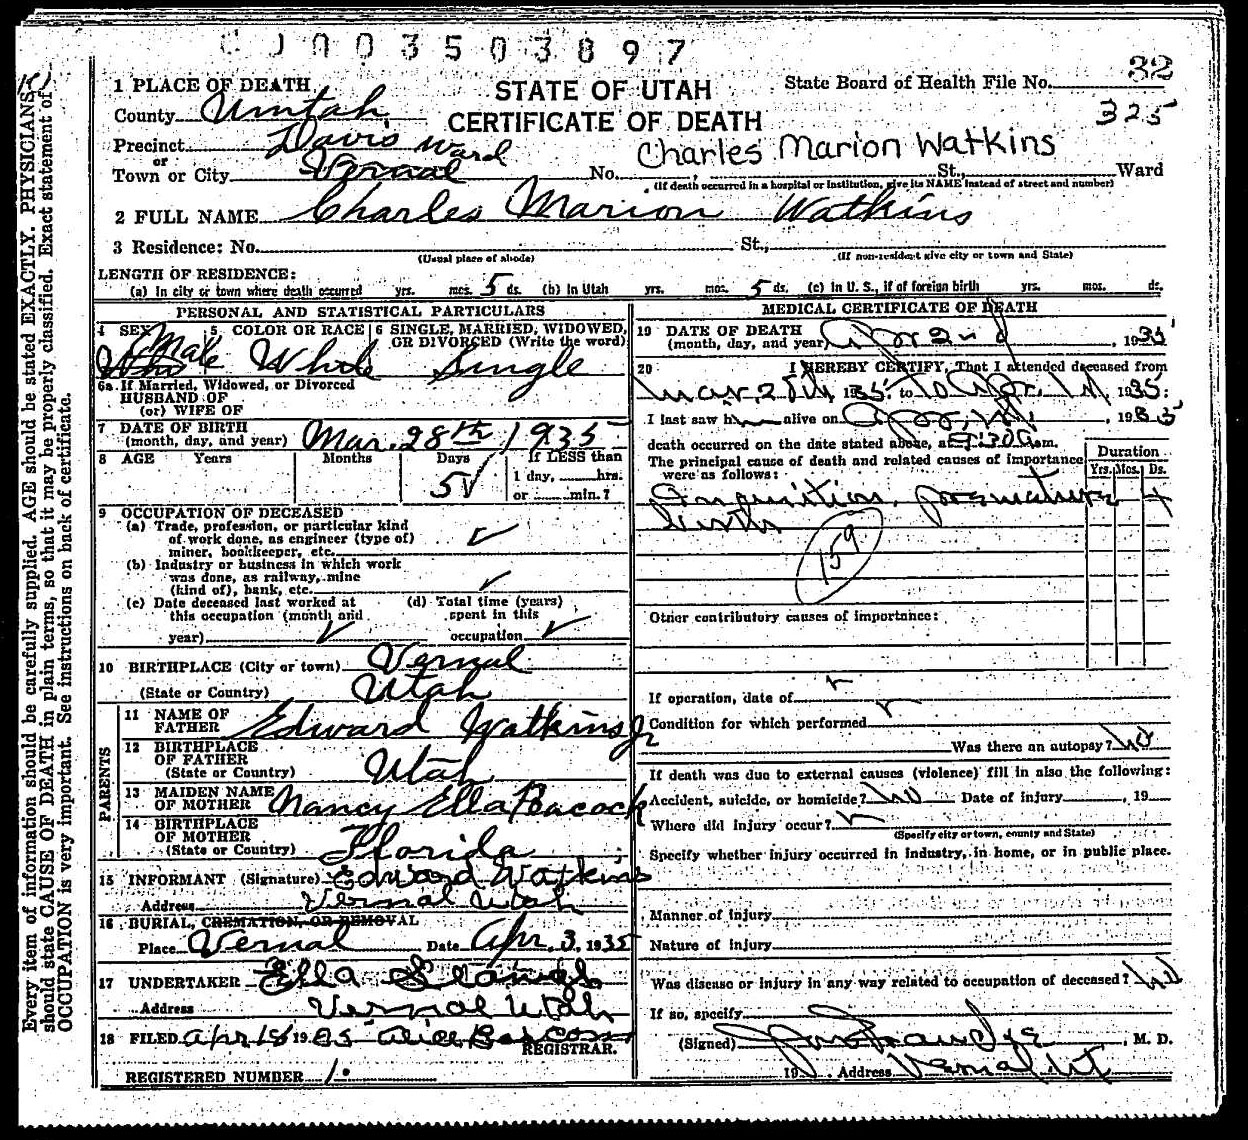 0 0 3 5 0 3 8 9 7
32
325
1 PLACE OF DEATH
STATE OF UTAH
CERTIFICATE OF DEATH
State Board of Health File No.
County Uintah
Precinct Davis Ward
or
Town or City Vernal
Charles Marion Watkins
No. St., Ward
(If death occurred in a hospital or institution, give its NAME instead of street and number)
2 FULL NAME Charles Marion Watkins
3 Residence: No. St.,
(Usual place of abode) (If non-resident give city or town and State)
LENGTH OF RESIDENCE:
(a) In city or town where death occurred yrs. mos. 5 ds. (b) In Utah yrs. mos. 5 ds. (c) in U. S., if of foreign birth yrs. mos. ds.
PERSONAL AND STATISTICAL PARTICULARS
4 SEX Male
5 COLOR OR RACE White
6 SINGLE, MARRIED, WIDOWED, OR DIVORCED (Write the word) Single
6a If Married, Widowed, or Divorced
HUSBAND OF
(or) WIFE OF
7 DATE OF BIRTH
(month, day, and year) Mar. 28th 1935
8 AGE Years Months Days If LESS than
5 1 day, hrs.
or min.?
9 OCCUPATION OF DECEASED
(a) Trade, profession, or particular kind
of work done, as engineer (type of)
miner, bookkeeper, etc.
(b) Industry or business in which work
was done, as railway, mine
(kind of), bank, etc.
(c) Date deceased last worked at
this occupation (month and
year)
(d) Total time (years)
spent in this
occupation
10 BIRTHPLACE (City or town) Vernal
(State or Country) Utah
PARENTS
11 NAME OF
FATHER Edward Watkins Jr
12 BIRTHPLACE
OF FATHER
(State or Country) Utah
13 MAIDEN NAME
OF MOTHER Nancy Ella Peacock
14 BIRTHPLACE
OF MOTHER
(State or Country) Florida
15 INFORMANT (Signature) Edward Watkins
Address Vernal Utah
16 BURIAL, CREMATION, OR REMOVAL
Place Vernal Date Apr. 3, 1935
17 UNDERTAKER Ella
Address Vernal Utah
18 FILED Apr 1935 Alice
REGISTRAR.
REGISTERED NUMBER 1.
MEDICAL CERTIFICATE OF DEATH
19 DATE OF DEATH
(month, day, and year) Apr 2nd, 1935
20 I HEREBY CERTIFY, That I attended deceased from
Mar. 28th, 1935 to Apr. 1st 1935:
I last saw h alive on Apr. 1st, 1935
death occurred on the date stated above, at 9:30 a.m.
The principal cause of death and related causes of importance
were as follows:
Duration
Yrs. Mos. Ds.
Inanition, premature
birth
159
Other contributory causes of importance:
If operation, date of
Condition for which performed
Was there an autopsy? No
If death was due to external causes (violence) fill in also the following:
Accident, suicide, or homicide? No Date of injury , 19
Where did injury occur?
(Specify city or town, county and State)
Specify whether injury occurred in industry, in home, or in public place.
Manner of injury
Nature of injury
Was disease or injury in any way related to occupation of deceased? No
If so, specify
(Signed) , M. D.
19 Address Vernal, Ut
Every item of information should be carefully supplied. AGE should be stated EXACTLY. PHYSICIANS
should state CAUSE OF DEATH in plain terms, so that it may be properly classified. Exact statement of
OCCUPATION is very important. See instructions on back of certificate.